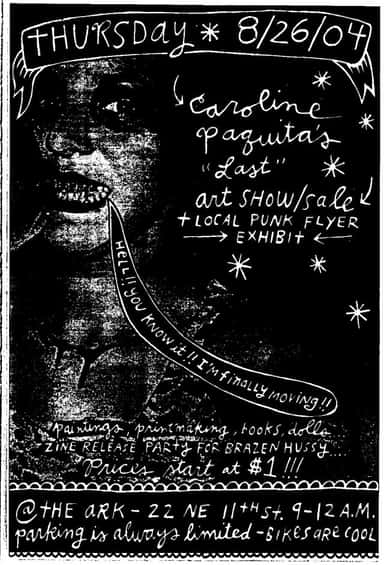 THURSDAY * 8/26/04
Caroline
Paquita's
"Last"
art SHOW/Sale
+ LOCAL PUNK FLYER
EXHIBIT
HELL!! YOU KNOW it!! I'M finally MOVING!!
paintings, printmaking, books, dolls
ZINE RELEASE PARTY FOR BRAZEN HUSSY
Prices start at $1 !!!
@ THE ARK - 22 NE 11TH St. 9-12 A.M.
parking is always limited - BIKES are COOL